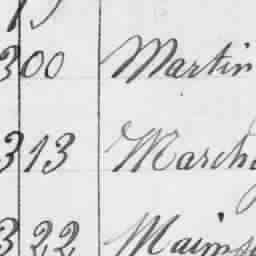 300 Martin
313 March
322